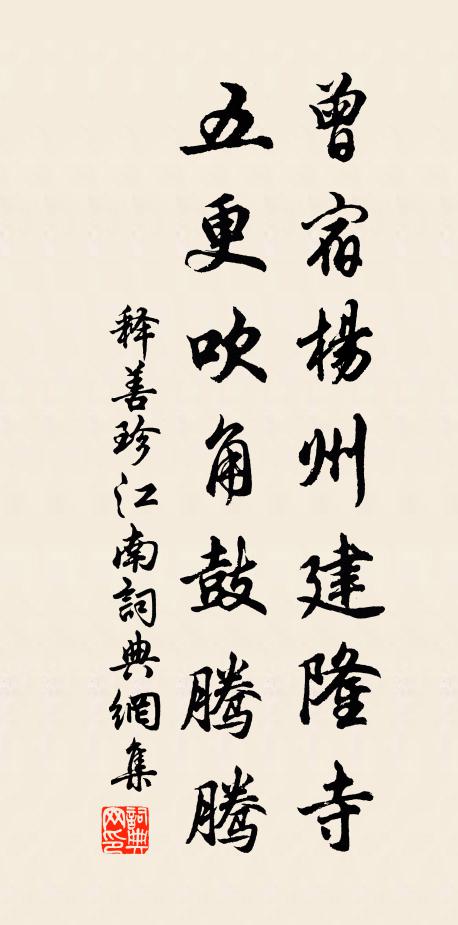 曾宿楊州建隆寺
五更吹角鼓騰騰
释善珍江南詞典網集
詞典
网印